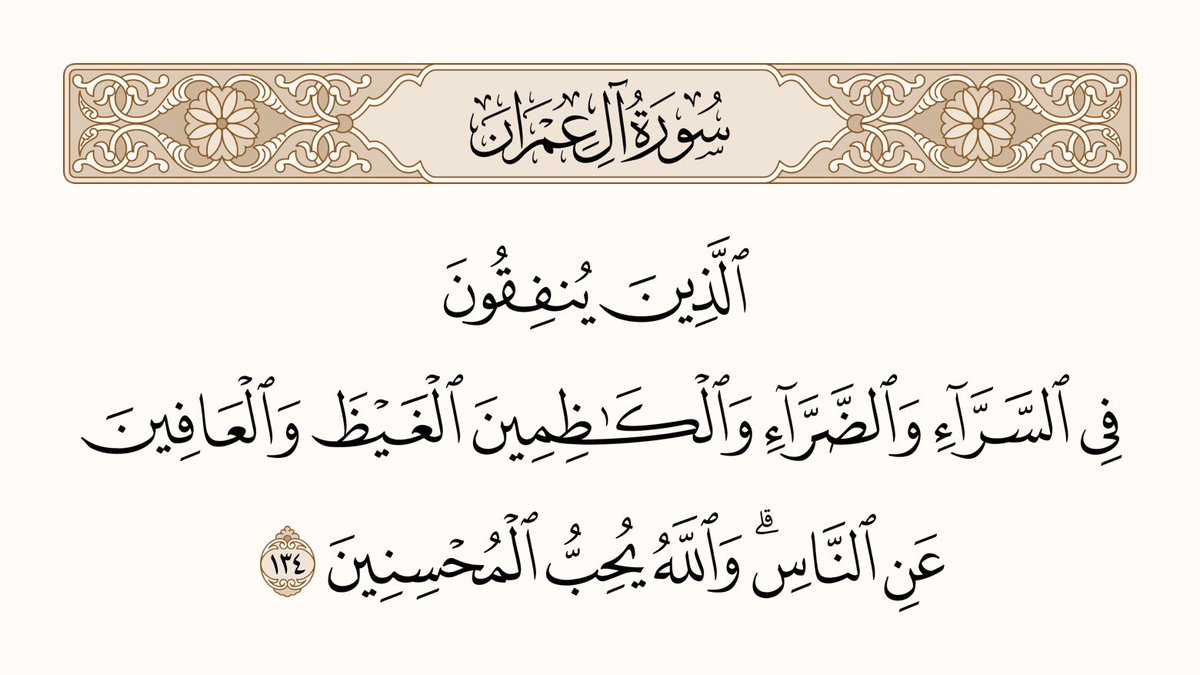 سُورَةُ آلِ عِمْرَان
ٱلَّذِينَ يُنفِقُونَ
فِي ٱلسَّرَّآءِ وَٱلضَّرَّآءِ وَٱلْكَٰظِمِينَ ٱلْغَيْظَ وَٱلْعَافِينَ
عَنِ ٱلنَّاسِۗ وَٱللَّهُ يُحِبُّ ٱلْمُحْسِنِينَ ١٣٤